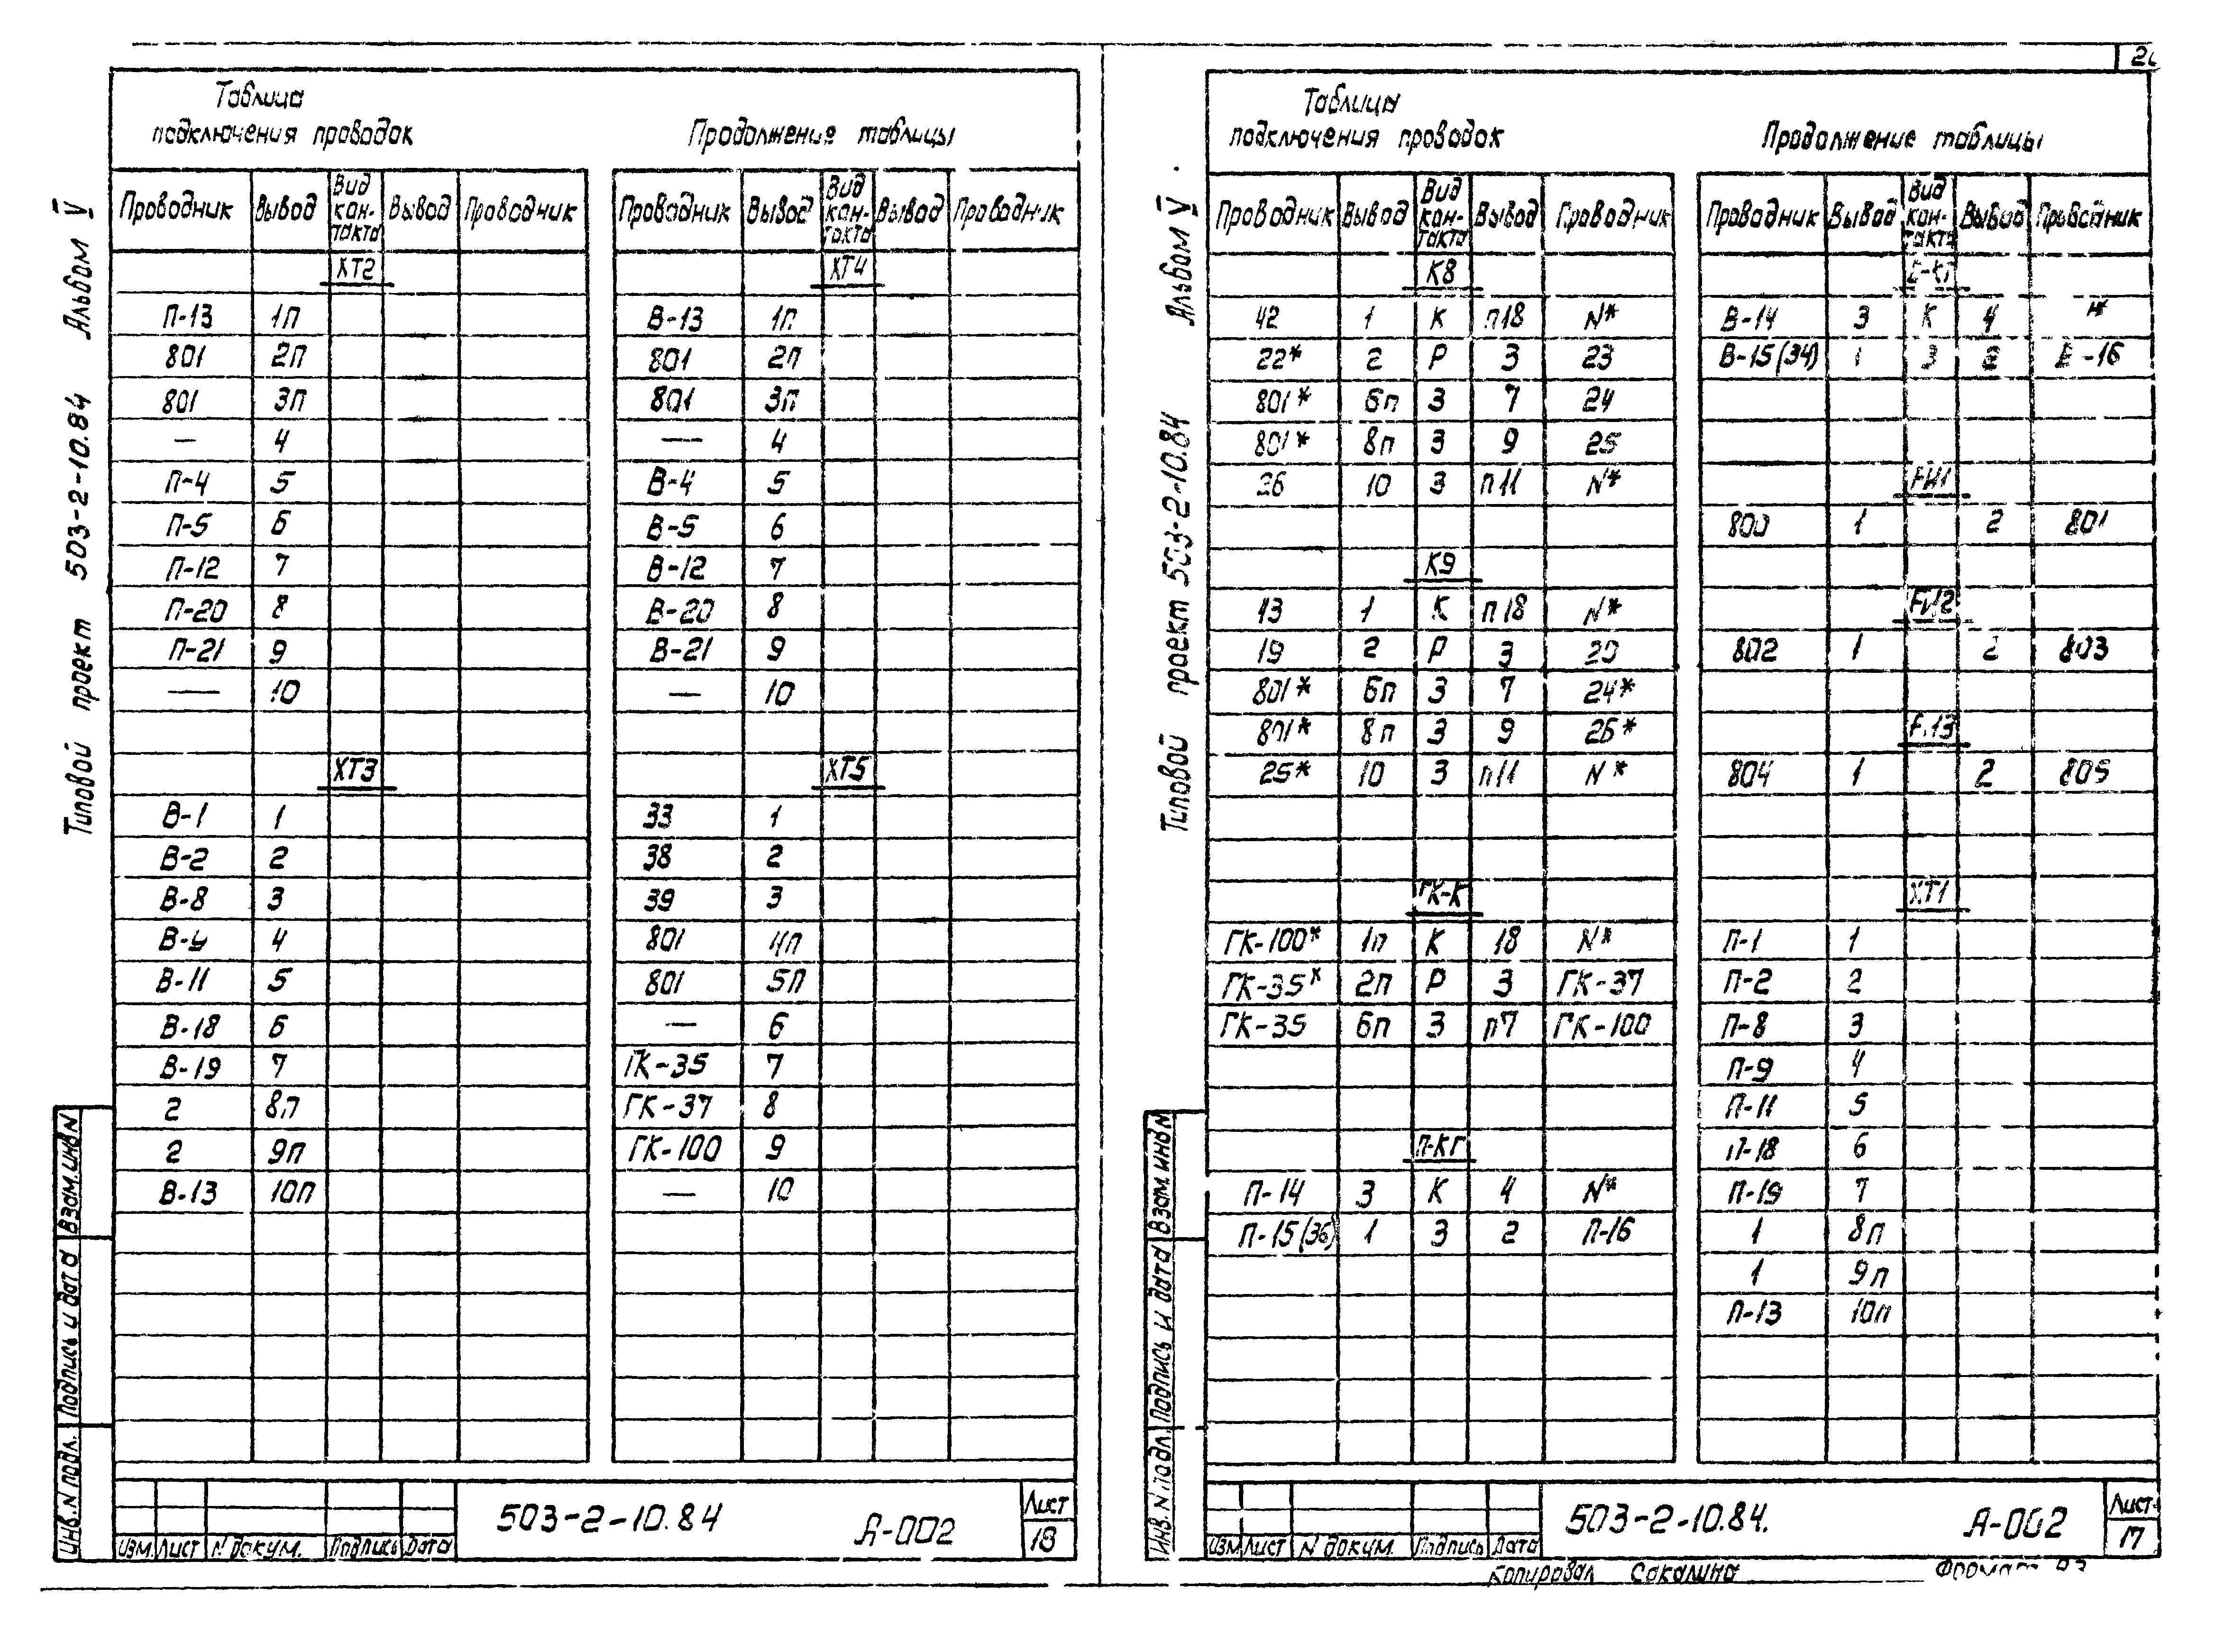 Типовой проект 503-2-10.84 Альбом V
Таблица
подключения проводок
Проводник Вывод Вид кон-такта Вывод Проводник
ХТ2
П-13 1п
801 2п
801 3п
— 4
П-4 5
П-5 6
П-12 7
П-20 8
П-21 9
— 10
ХТ3
В-1 1
В-2 2
В-8 3
В-9 4
В-11 5
В-18 6
В-19 7
2 8п
2 9п
В-13 10п
Продолжения таблицы
Проводник Вывод Вид кон-такта Вывод Проводник
ХТ4
В-13 1п
801 2п
801 3п
— 4
В-4 5
В-5 6
В-12 7
В-20 8
В-21 9
— 10
ХТ5
33 1
38 2
39 3
801 4п
801 5п
— 6
ГК-35 7
ГК-37 8
ГК-100 9
— 10
Инв. N подл. Подпись и дата Взам. инв N
Изм. Лист N докум. Подпись Дата
503-2-10.84 А-002
Лист
18
Типовой проект 503-2-10.84 Альбом V
Таблицы
подключения проводок
Проводник Вывод Вид кон-такта Вывод Проводник
К8
42 1 К п18 N*
22* 2 Р 3 23
801* 6п З 7 24
801* 8п З 9 25
26 10 З п11 N*
К9
13 1 К п18 N*
19 2 Р 3 20
801* 6п З 7 24*
801* 8п З 9 26*
25* 10 З п11 N*
ГК-К
ГК-100* 1п К 18 N*
ГК-35* 2п Р 3 ГК-37
ГК-35 6п З п7 ГК-100
П-КГ
П-14 3 К 4 N*
П-15(36) 1 З 2 П-16
Продолжение таблицы
Проводник Вывод Вид кон-такта Вывод Проводник
В-14 3 К 4
В-15(34) 1 З 2
800 1 2 801
802 1 2 803
804 1 2 805
ХТ1
П-1 1
П-2 2
П-8 3
П-9 4
П-11 5
П-18 6
П-19 7
1 8п
1 9п
П-13 10п
Инв. N подл. Подпись и дата Взам. инв N
Изм Лист N докум. Подпись Дата
503-2-10.84. А-002
Лист
17
Копировал Сокалина Формат